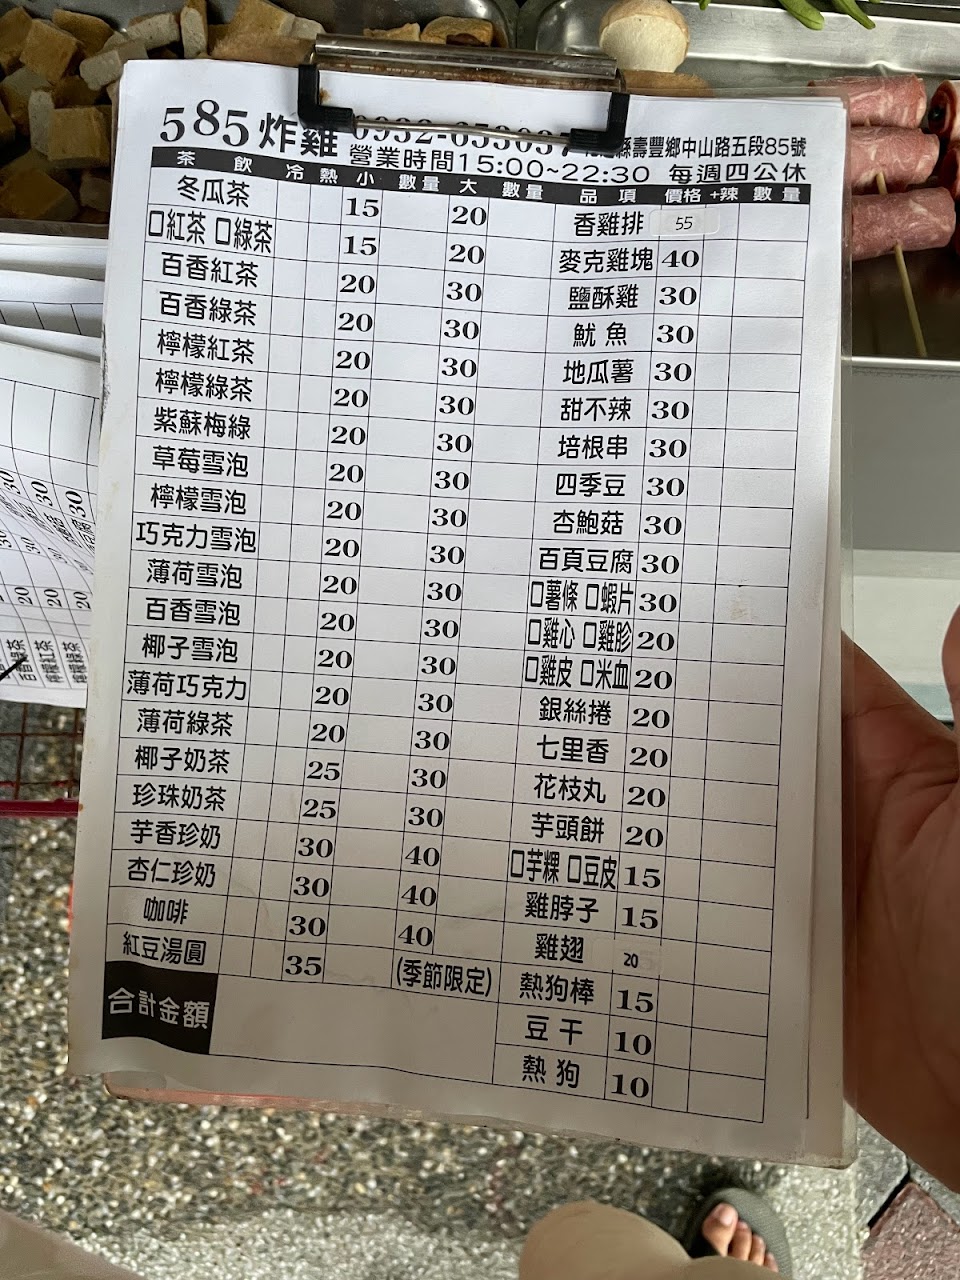 585炸雞
縣壽豐鄉中山路五段85號
營業時間15:00~22:30 每週四公休
茶飲 冷 熱 小 數量 大 數量 品項 價格 +辣 數量
冬瓜茶 15 20
□紅茶 □綠茶 15 20
百香紅茶 20 30
百香綠茶 20 30
檸檬紅茶 20 30
檸檬綠茶 20 30
紫蘇梅綠 20 30
草莓雪泡 20 30
檸檬雪泡 20 30
巧克力雪泡 20 30
薄荷雪泡 20 30
百香雪泡 20 30
椰子雪泡 20 30
薄荷巧克力 20 30
薄荷綠茶 20 30
椰子奶茶 25 30
珍珠奶茶 25 30
芋香珍奶 30 40
杏仁珍奶 30 40
咖啡 30 40
紅豆湯圓 35 (季節限定)
合計金額
香雞排 55
麥克雞塊 40
鹽酥雞 30
魷魚 30
地瓜薯 30
甜不辣 30
培根串 30
四季豆 30
杏鮑菇 30
百頁豆腐 30
□薯條 □蝦片 30
□雞心 □雞胗 20
□雞皮 □米血 20
銀絲捲 20
七里香 20
花枝丸 20
芋頭餅 20
□芋粿 □豆皮 15
雞脖子 15
雞翅 20
熱狗棒 15
豆干 10
熱狗 10